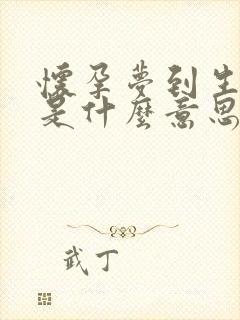 懷孕夢到生
是什麼意思
武丁